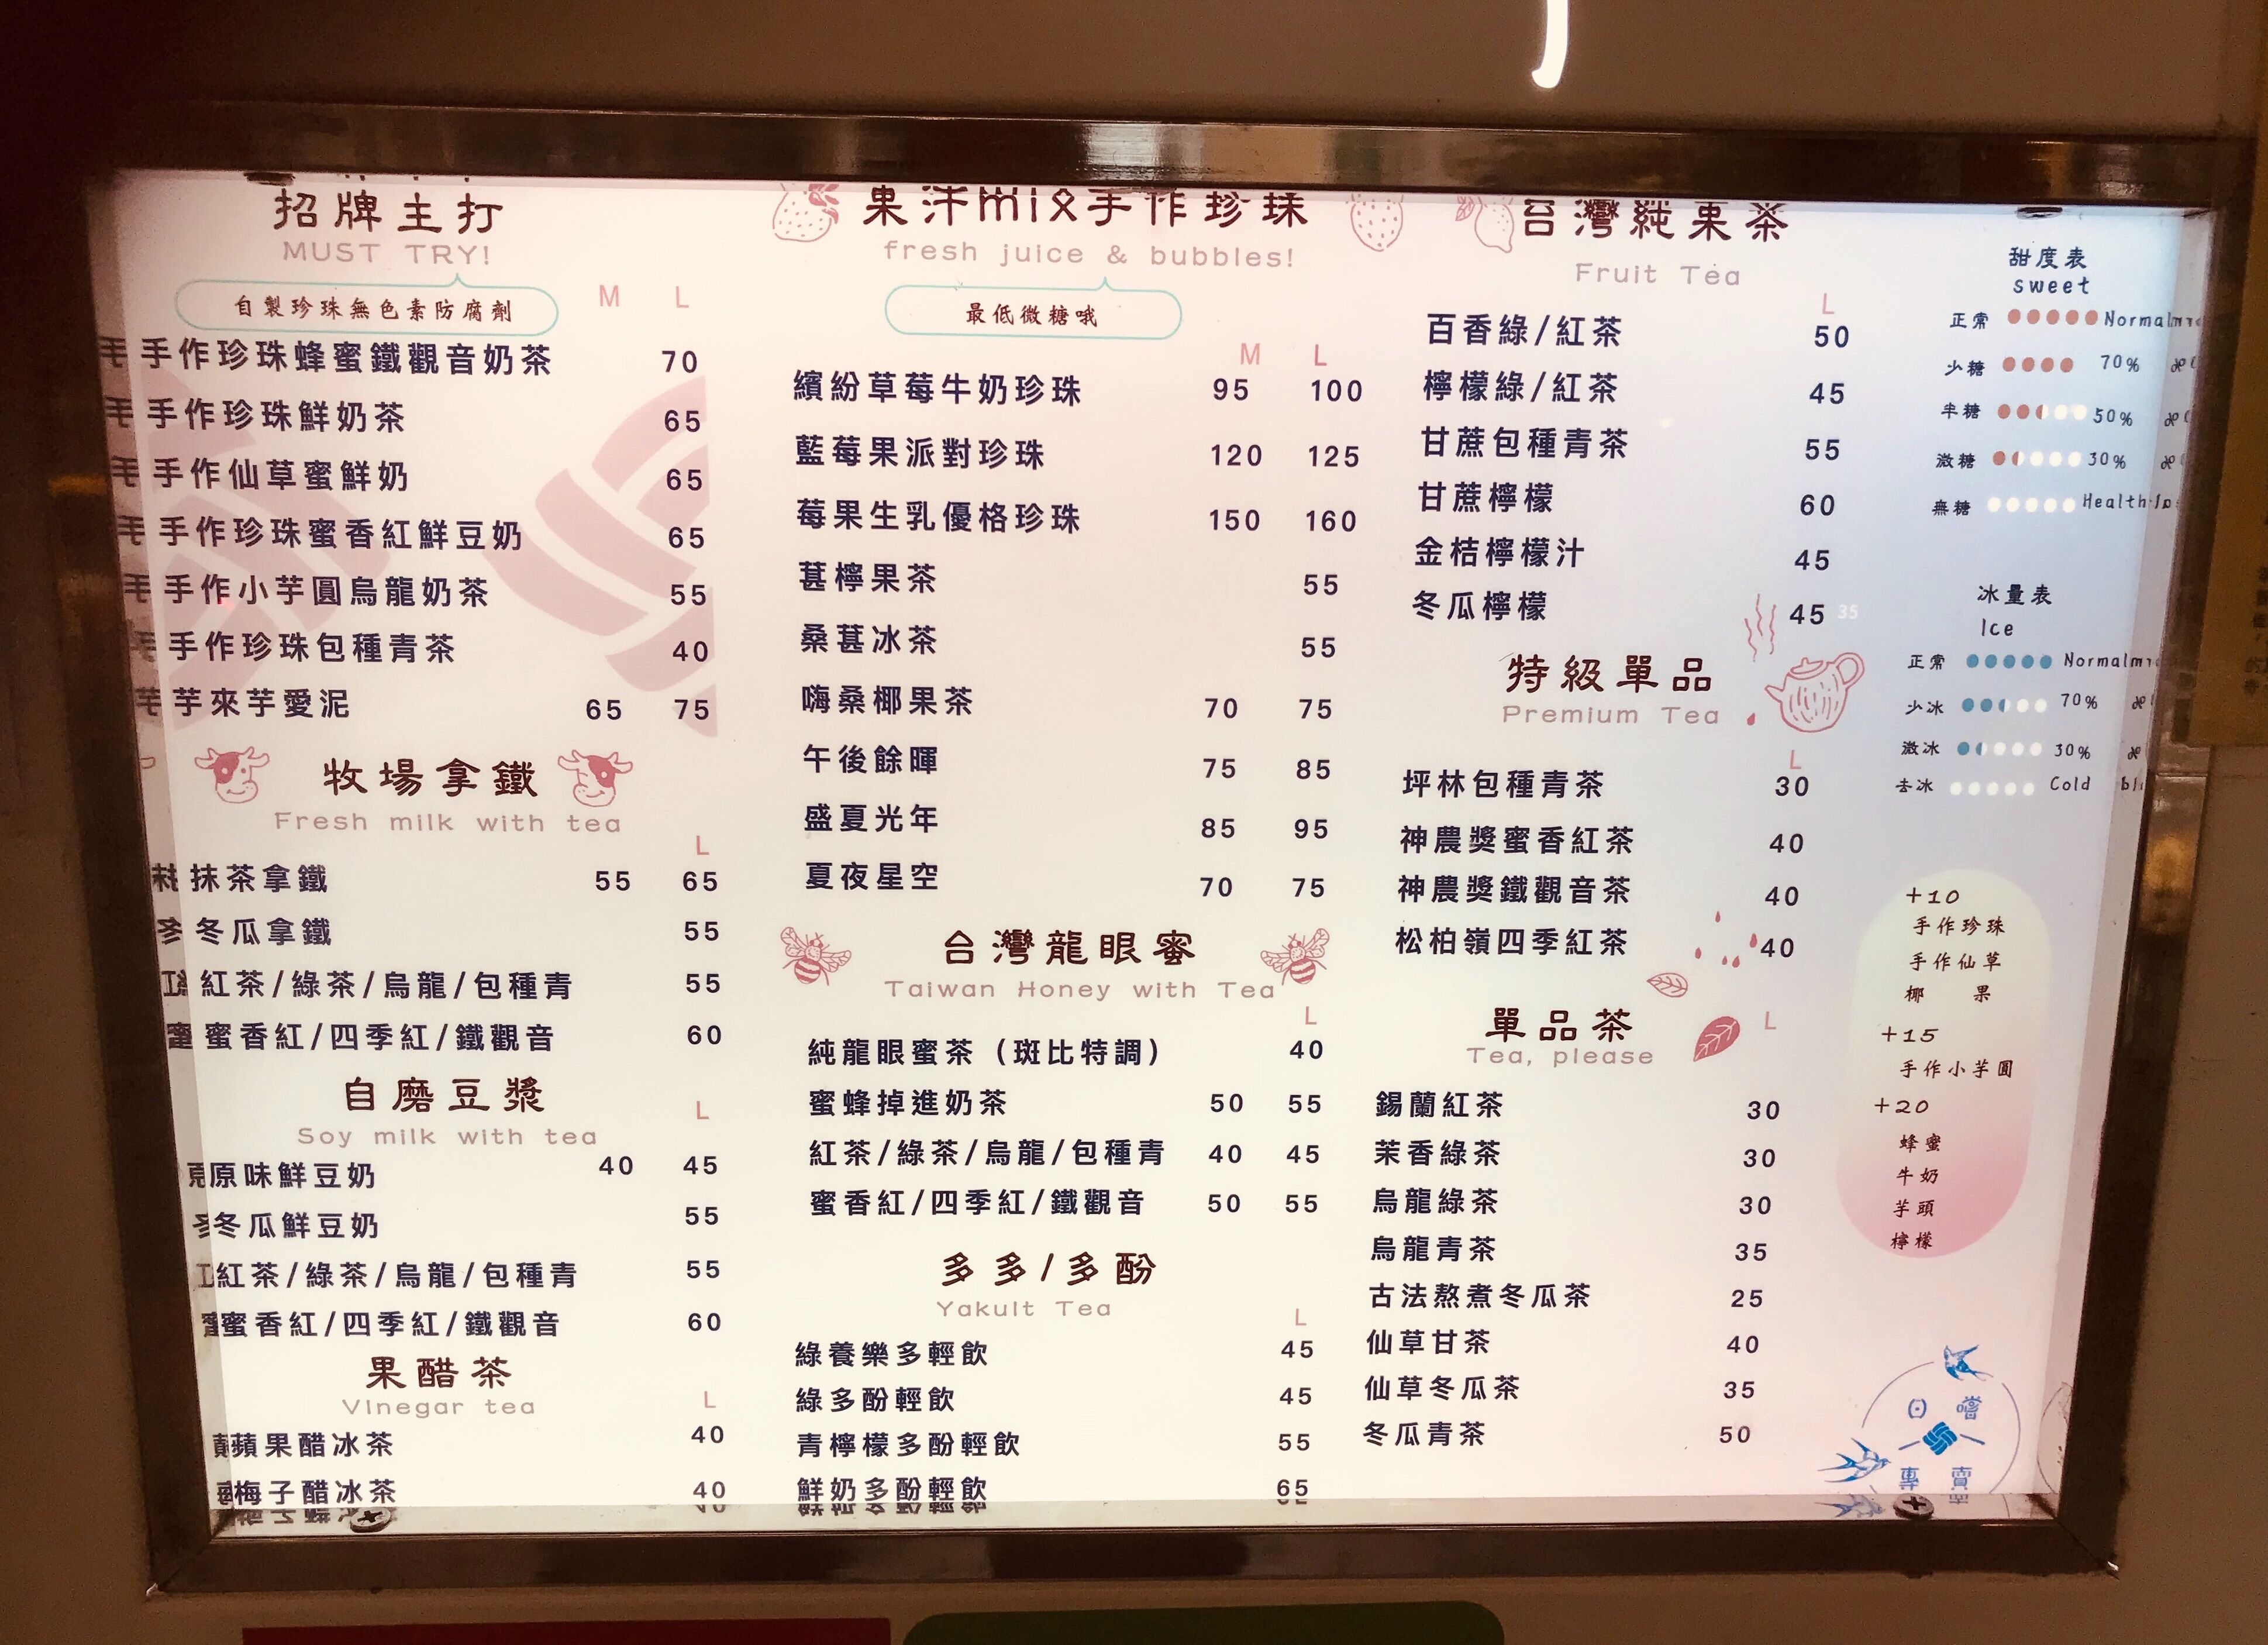 招牌主打
MUST TRY!
自製珍珠無色素防腐劑
M L
手作珍珠蜂蜜鐵觀音奶茶 70
手作珍珠鮮奶茶 65
手作仙草蜜鮮奶 65
手作珍珠蜜香紅鮮豆奶 65
手作小芋圓烏龍奶茶 55
手作珍珠包種青茶 40
芋來芋愛泥 65 75
牧場拿鐵
Fresh milk with tea
L
抹茶拿鐵 55 65
冬瓜拿鐵 55
紅茶/綠茶/烏龍/包種青 55
蜜香紅/四季紅/鐵觀音 60
自磨豆漿
L
Soy milk with tea
原味鮮豆奶 40 45
冬瓜鮮豆奶 55
紅茶/綠茶/烏龍/包種青 55
蜜香紅/四季紅/鐵觀音 60
果醋茶
Vinegar tea
L
蘋果醋冰茶 40
梅子醋冰茶 40
果汁mix手作珍珠
fresh juice & bubbles!
最低微糖哦
M L
繽紛草莓牛奶珍珠 95 100
藍莓果派對珍珠 120 125
莓果生乳優格珍珠 150 160
葚檸果茶 55
桑葚冰茶 55
嗨桑椰果茶 70 75
午後餘暉 75 85
盛夏光年 85 95
夏夜星空 70 75
台灣龍眼蜜
Taiwan Honey with Tea
L
純龍眼蜜茶（斑比特調） 40
蜜蜂掉進奶茶 50 55
紅茶/綠茶/烏龍/包種青 40 45
蜜香紅/四季紅/鐵觀音 50 55
多多/多酚
Yakult Tea
L
綠養樂多輕飲 45
綠多酚輕飲 45
青檸檬多酚輕飲 55
鮮奶多酚輕飲 65
台灣純果茶
Fruit Tea
L
百香綠/紅茶 50
檸檬綠/紅茶 45
甘蔗包種青茶 55
甘蔗檸檬 60
金桔檸檬汁 45
冬瓜檸檬 45 35
特級單品
Premium Tea
L
坪林包種青茶 30
神農獎蜜香紅茶 40
神農獎鐵觀音茶 40
松柏嶺四季紅茶 40
單品茶
L
Tea, please
錫蘭紅茶 30
茉香綠茶 30
烏龍綠茶 30
烏龍青茶 35
古法熬煮冬瓜茶 25
仙草甘茶 40
仙草冬瓜茶 35
冬瓜青茶 50
甜度表
sweet
正常 Normal
少糖 70%
半糖 50%
微糖 30%
無糖 Health
冰量表
Ice
正常 Normal
少冰 70%
微冰 30%
去冰 Cold
+10
手作珍珠
手作仙草
椰 果
+15
手作小芋圓
+20
蜂蜜
牛奶
芋頭
檸檬
日 嚐
專 賣